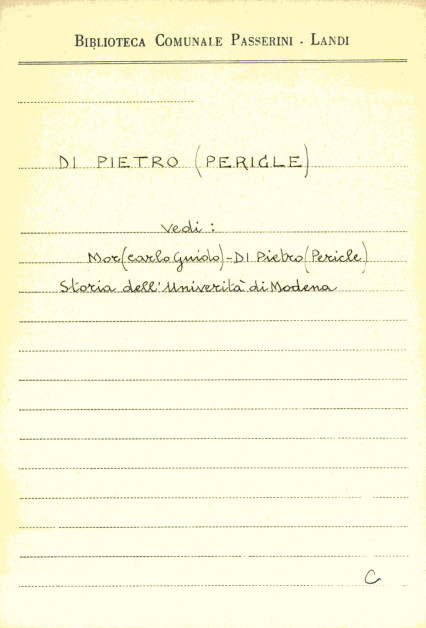 BIBLIOTECA COMUNALE PASSERINI - LANDI
DI PIETRO (PERICLE)
vedi :
Mor (carlo Guido) - DI Pietro (Pericle)
Storia dell'Univerità di Modena
C